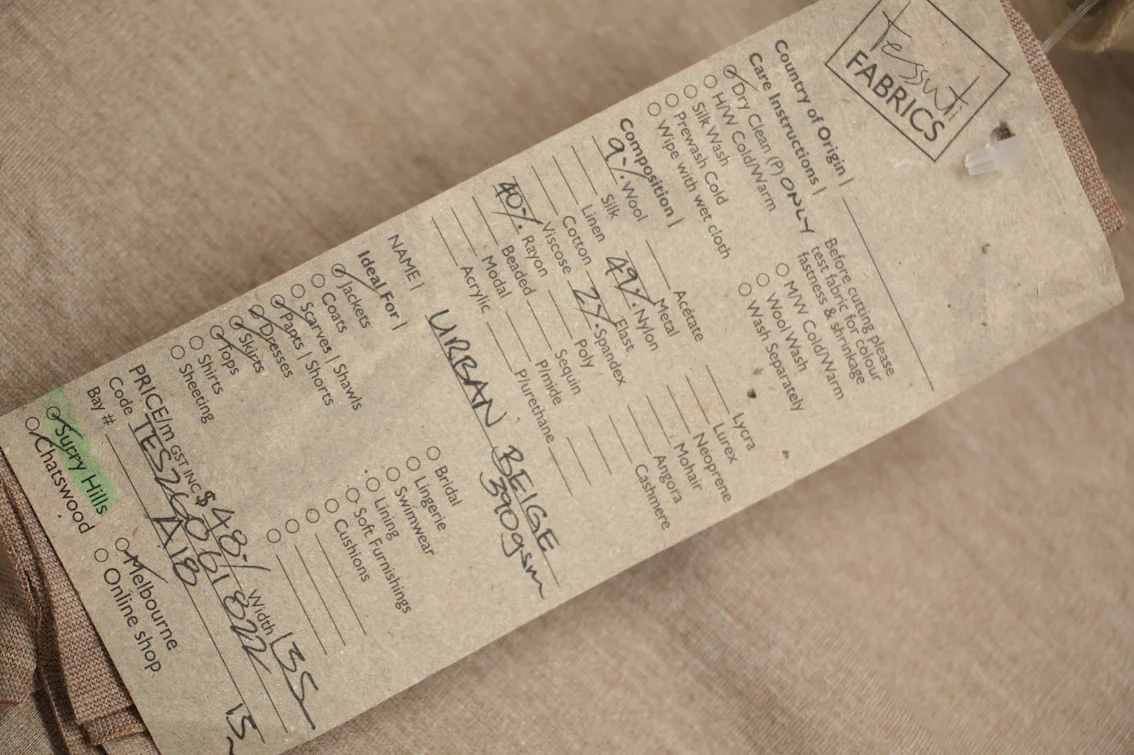 Tessuti
FABRICS
Country of Origin |
Care Instructions |
Dry Clean (P) ONLY
H/W Cold/Warm
Silk Wash
Prewash Cold
Wipe with wet cloth
Before cutting please
test fabric for colour
fastness & shrinkage
M/W Cold/Warm
Wool Wash
Wash Separately
Composition |
9% Wool
Silk
Linen
Cotton
Viscose
40% Rayon
Beaded
Modal
Acrylic
Acetate
Metal
49% Nylon
Elast
2% Spandex
Poly
Sequin
P/mide
P/urethane
Lycra
Lurex
Neoprene
Mohair
Angora
Cashmere
NAME | URBAN BEIGE
390gsm
Ideal For |
Jackets
Coats
Scarves | Shawls
Pants | Shorts
Dresses
Skirts
Tops
Shirts
Sheeting
Bridal
Lingerie
Swimwear
Lining
Soft Furnishings
Cushions
PRICE/m GST INC $48.- Width 135
Code TES260618022
Bay # A18
Surry Hills
Chatswood
Melbourne
Online shop